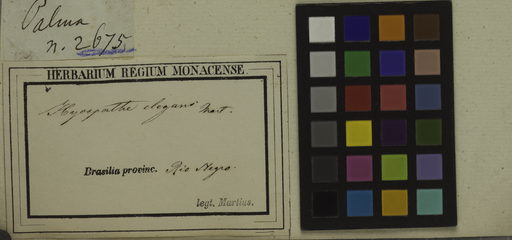 Palma
n. 2675
HERBARIUM REGIUM MONACENSE
Hyospathe elegans Mart.
Brasilia provinc. Rio Negro.
legt. Martius.